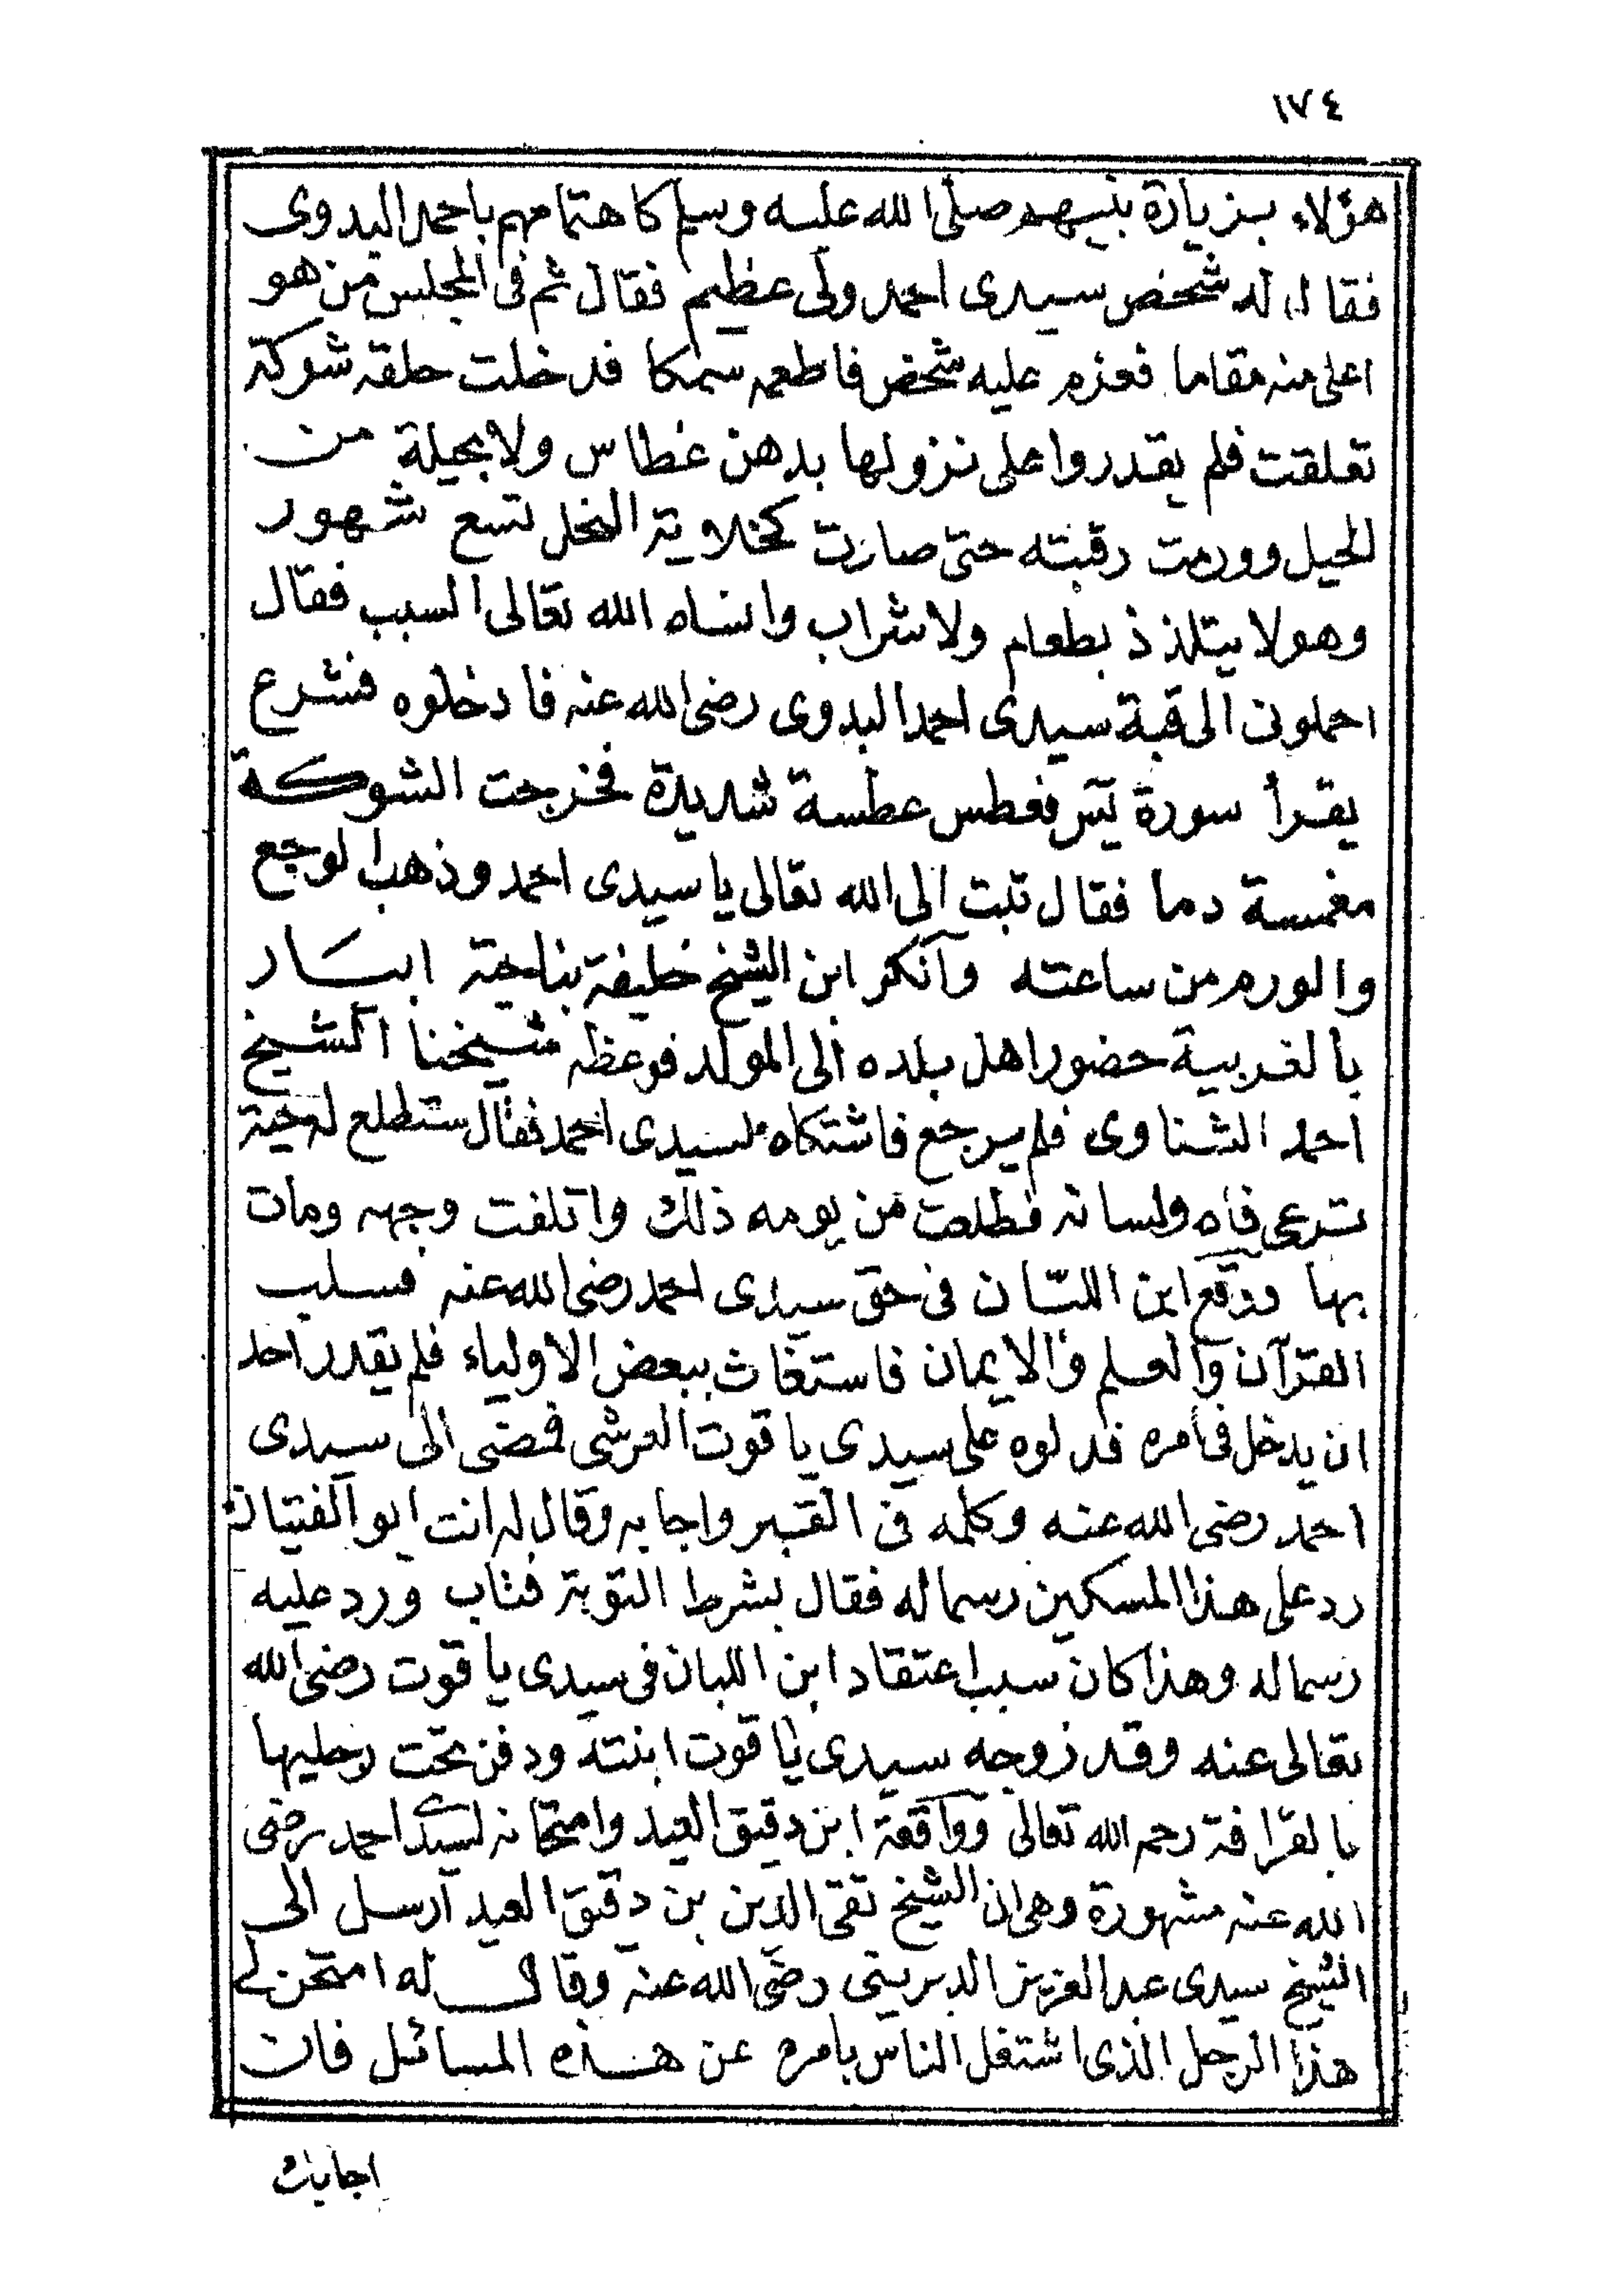 ١٧٤
هؤلاء بزيارة نبيهم صلى الله عليه وسلم كاهتمامهم باحمد البدوى
فقال له شخص سيدى احمد ولى عظيم فقال ثم فى المجلس من هو
اعلى منه مقاما فعزم عليه شخص فاطعمه سمكا فدخلت حلقه شوكة
تعلقت فلم يقدروا على نزولها بدهن عطاس ولا بحيلة من
الحيل وورمت رقبته حتى صارت كخلاية النحل تسع شهور
وهو لا يتلذذ بطعام ولا شراب وانساه الله تعالى السبب فقال
احملونى الى قبة سيدى احمد البدوى رضى الله عنه فادخلوه فشرع
يقرأ سورة يٓس فعطس عطسة شديدة فخرجت الشوكة
مغمسة دما فقال تبت الى الله تعالى يا سيدى احمد وذهب الوجع
والورم من ساعته وآنكر ابن الشيخ خليفة بناحية ابيار
بالغربية حضور اهل بلده الى المولد فوعظه شيخنا الشيخ
احمد الشناوى فلم يرجع فاشتكاه لسيدى احمد فقال ستطلع له حية
ترعى فاه ولسانه فطلعت من يومه ذلك واتلفت وجهه ومات
بها ووقع ابن اللبّان فى حق سيدى احمد رضى الله عنه فسلب
القرآن والعلم والايمان فاستغاث ببعض الاولياء فلم يقدر احد
ان يدخل فى امره فدلوه على سيدى ياقوت العرشى فمضى الى سيدى
احمد رضى الله عنه وكلمه فى القبر واجابه وقال له انت ابو الفتيان
رد على هذا المسكين رسماله فقال بشرط التوبة فتاب ورد عليه
رسماله وهذا كان سبب اعتقاد ابن اللبان فى سيدى ياقوت رضى الله
تعالى عنه وقد زوجه سيدى ياقوت ابنته ودفن تحت رجليها
بالقرافة رحمه الله تعالى وواقعة ابن دقيق العيد وامتحانه لسيدى احمد رضى
الله عنه مشهورة وهى ان الشيخ تقى الدين بن دقيق العيد آرسل الى
الشيخ سيدى عبد العزيز الديرينى رضى الله عنه وقال له امتحن لى
هذا الرجل الذى اشتغل الناس بامره عن هذه المسائل فان
اجابك